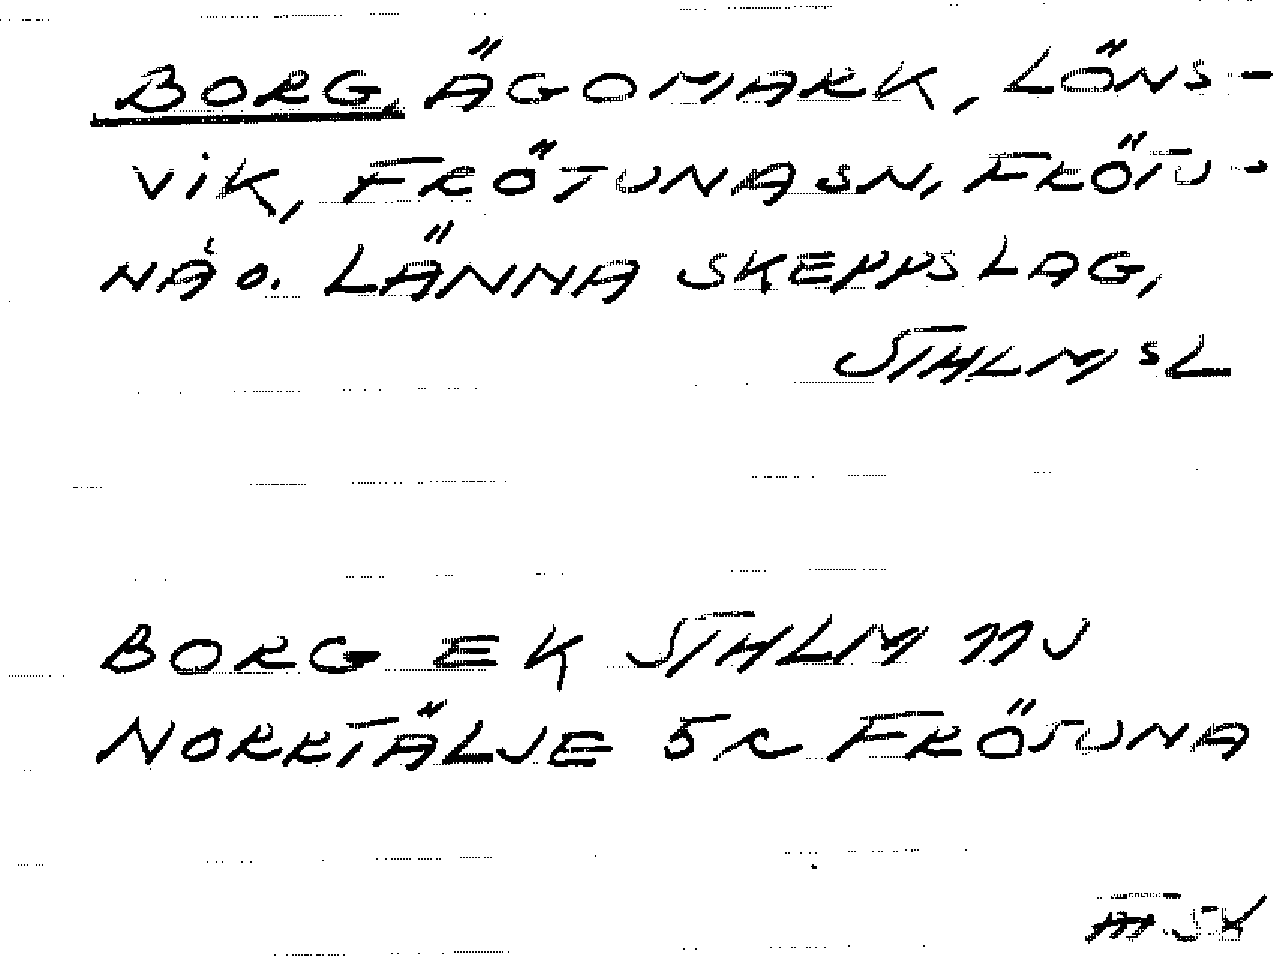 BORG, ÄGOMARK, LÖNS-
VIK, FRÖTUNA SN, FRÖTU-
NA O. LÄNNA SKEPPSLAG,
STHLMSL
BORG EK STHLM 11J
NORRTÄLJE 5c FRÖTUNA